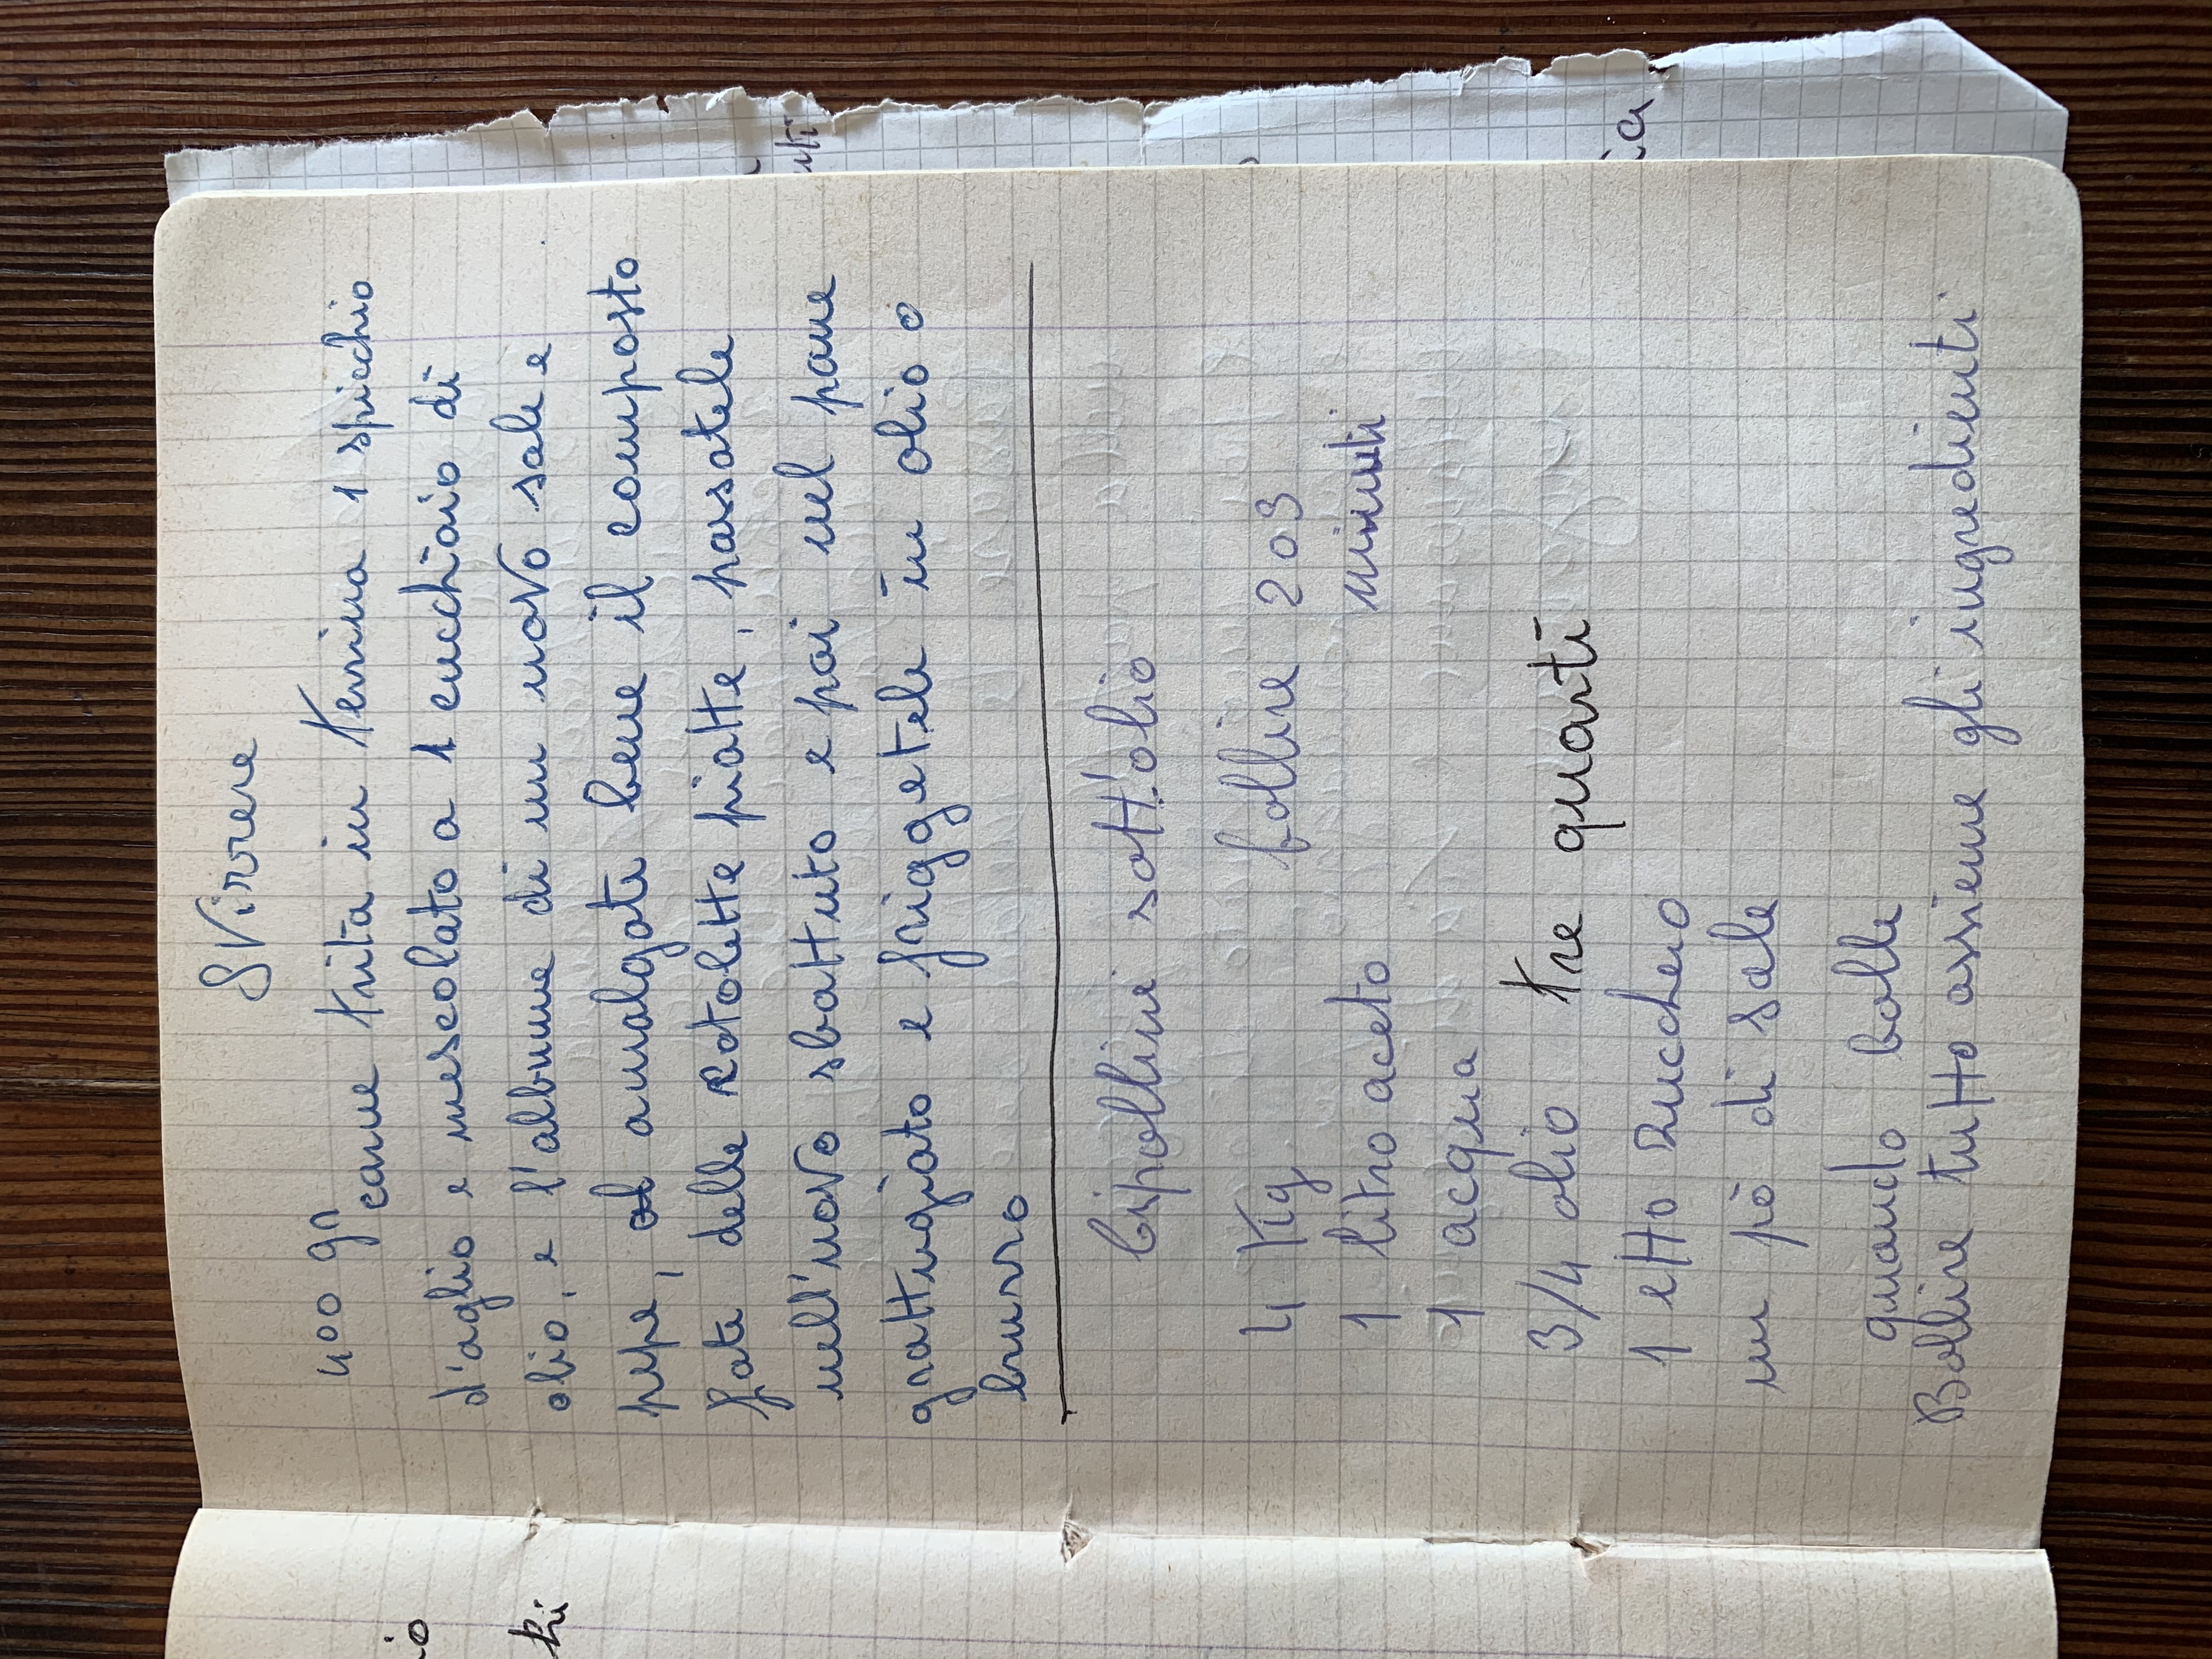 SVizzere
400 gr
carne trita in terrina 1 spicchio
d'aglio e mescolato a 1 cucchiaio di
olio, e l'albume di un uovo sale e
pepe, amalgate bene il composto
fate delle cotolette piatte, passatele
nell'uovo sbattuto e poi nel pane
grattugiato e friggetele in olio o
burro
Cipolline sott'olio
4 Kg bollire 2 o 3
1 litro aceto minuti
1 acqua
3/4 olio tre quarti
1 etto zucchero
un pò di sale
quando bolle
Bollire tutto assieme gli ingredienti
io
hi
uti
ia